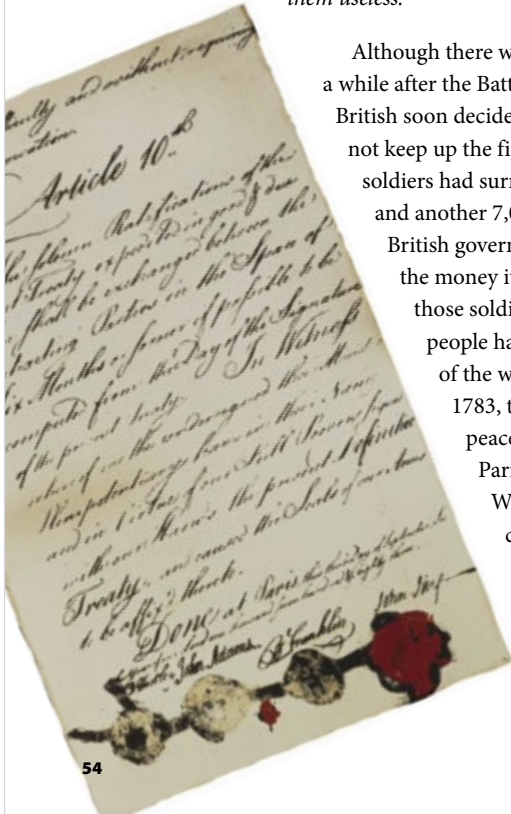 them useless.
Although there w
a while after the Batt
British soon decide
not keep up the fi
soldiers had surr
and another 7,0
British govern
the money i
those soldi
people ha
of the w
1783, t
peace
Pari
W
c
culty and without requiring
Article 10.th
solemn Ratifications of the
Treaty expedited in good & due
shall be exchanged between the
Parties in the Space of
ix Months or sooner if possible to be
computed from the Day of the Signature
of the present Treaty. In Witness
we the undersigned their
Plenipotentiary have in their Name
and in Virtue of our Full Powers signed
with our Hands the present Definitive
Treaty, and caused the Seals of our Arms
to be affix'd thereto.
Done at Paris, this third day of September In
John Adams. B Franklin John Jay
54